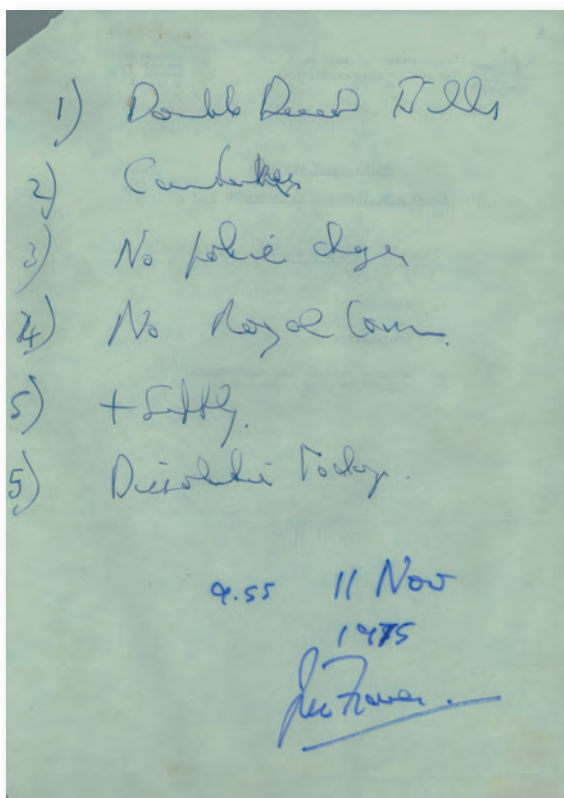 1) Double Dissol Bills
2) Caretaker
3) No policy changes
4) No Royal Comm.
5) + Supply.
5) Dissolution Today.
9.55 11 Nov
1975